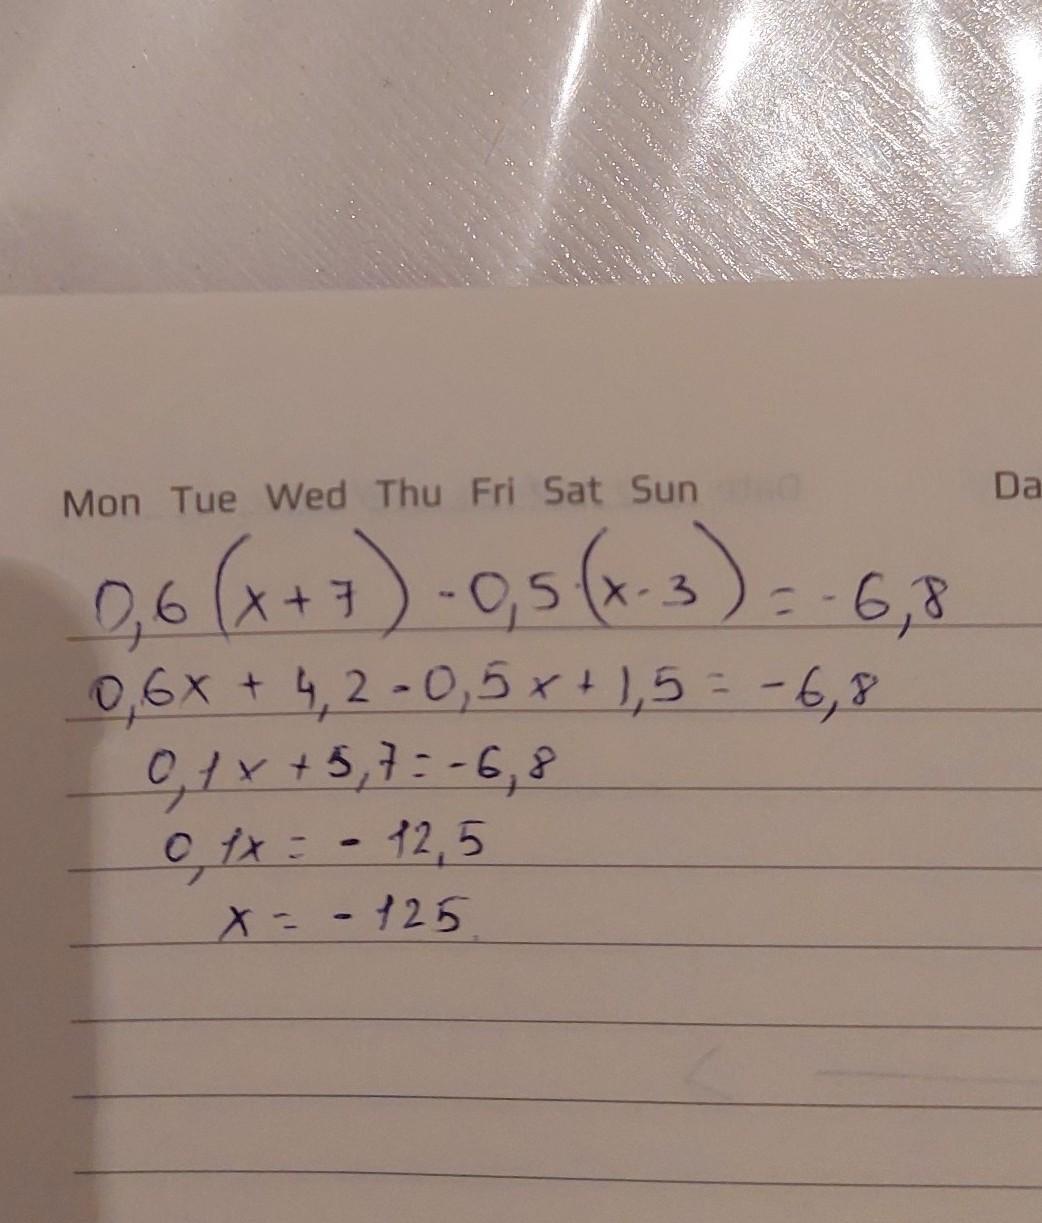 Mon Tue Wed Thu Fri Sat Sun Da
0,6(x+7)-0,5·(x-3)=-6,8
0,6x+4,2-0,5x+1,5=-6,8
0,1x+5,7=-6,8
0,1x=-12,5
x=-125